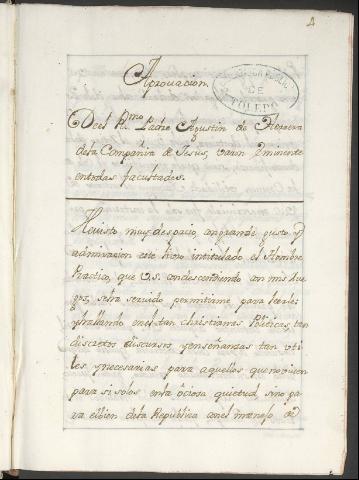 4
Aprovacion.
BIBLIOTECA PUBLICA
DE
TOLEDO
Deel R.mo Padre Agustin de Herrera
dela Compañia de Jesus, varon Eminente
entodas facultades.
Hevisto muy despacio, congrande gusto y
admiracion este libro intitulado el Hombre
Practico, que V.S. condescendiendo con mis Rue
gos, seha servido permitirme para leerle:
yhallando enel tan christianas Politicas, tan
discretos discursos, yenseñanzas tan vti
les, ynecesarias para aquellos que noviven
para si solos enla ociosa quietud, sino pa
ra elbien dela Republica conel manejo de